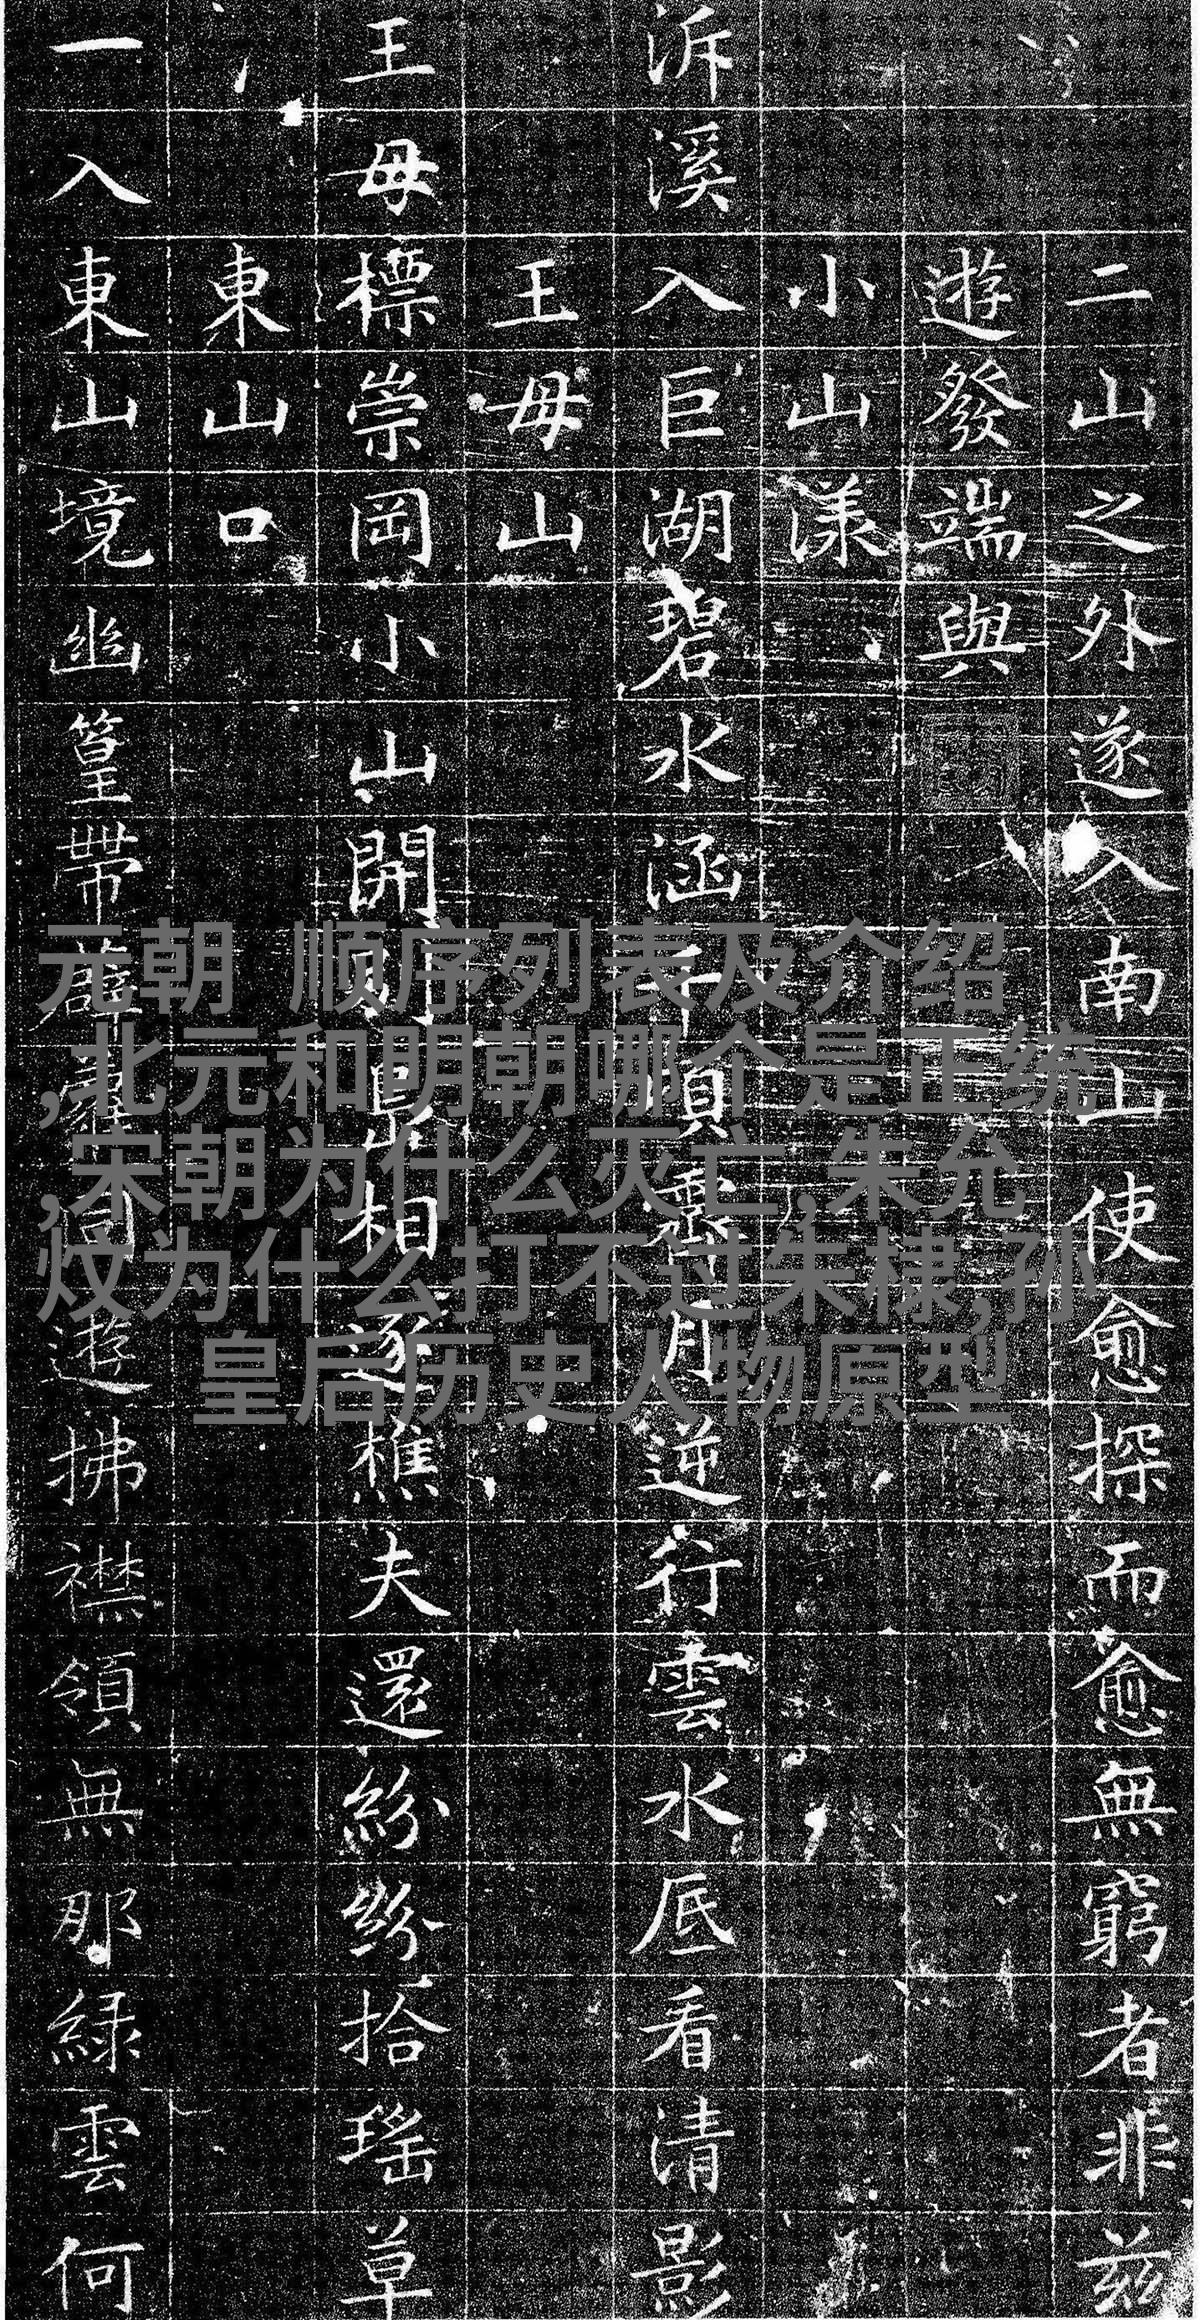 二山之外遂入南山使愈探而愈無窮者非茲
遊發端與
小山漾
泝溪入巨湖碧水涵千頃霽月逆行雲水底看清影
王母山
王母標崇岡小山開相逐樵夫還紛紛拾瑤草
東山口
一入東山境幽篁帶麓同遊拂襟領無那綠雲何
元朝 顺序列表及介绍
,北元和明朝哪个是正统
,宋朝为什么灭亡,朱允
炆为什么打不过朱棣,孙
皇后历史人物原型